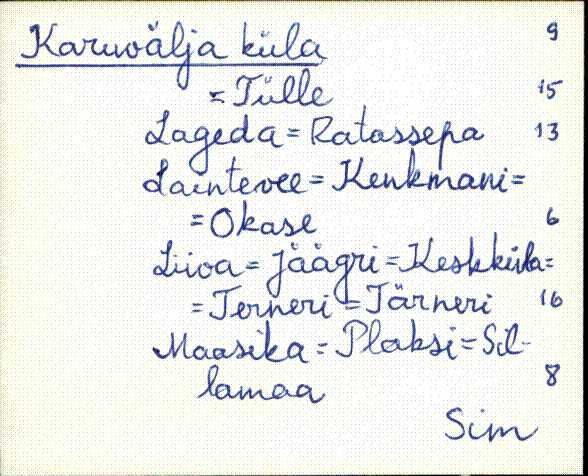 Karuvälja küla 9
= Tülle 15
Lageda = Ratassepa 13
Laintevee = Kenkmani =
= Okase 6
Liiva = Jäägri = Keskküla =
= Terneri = Tärneri 16
Maasika = Plaksi = Sil-
lamaa 8
Sim